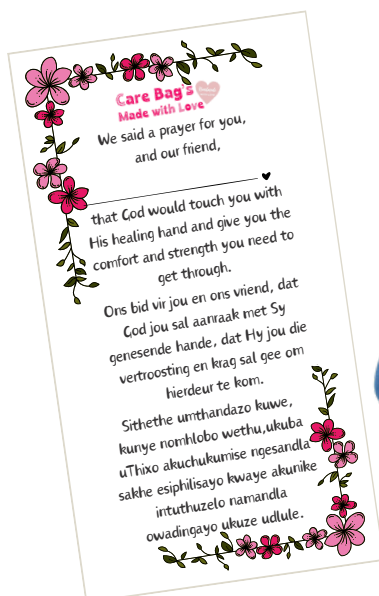 Care Bag's
Made with Love
We said a prayer for you,
and our friend,
that God would touch you with
His healing hand and give you the
comfort and strength you need to
get through.
Ons bid vir jou en ons vriend, dat
God jou sal aanraak met Sy
genesende hande, dat Hy jou die
vertroosting en krag sal gee om
hierdeur te kom.
Sithethe umthandazo kuwe,
kunye nomhlobo wethu,ukuba
uThixo akuchukumise ngesandla
sakhe esiphilisayo kwaye akunike
intuthuzelo namandla
owadingayo ukuze udlule.